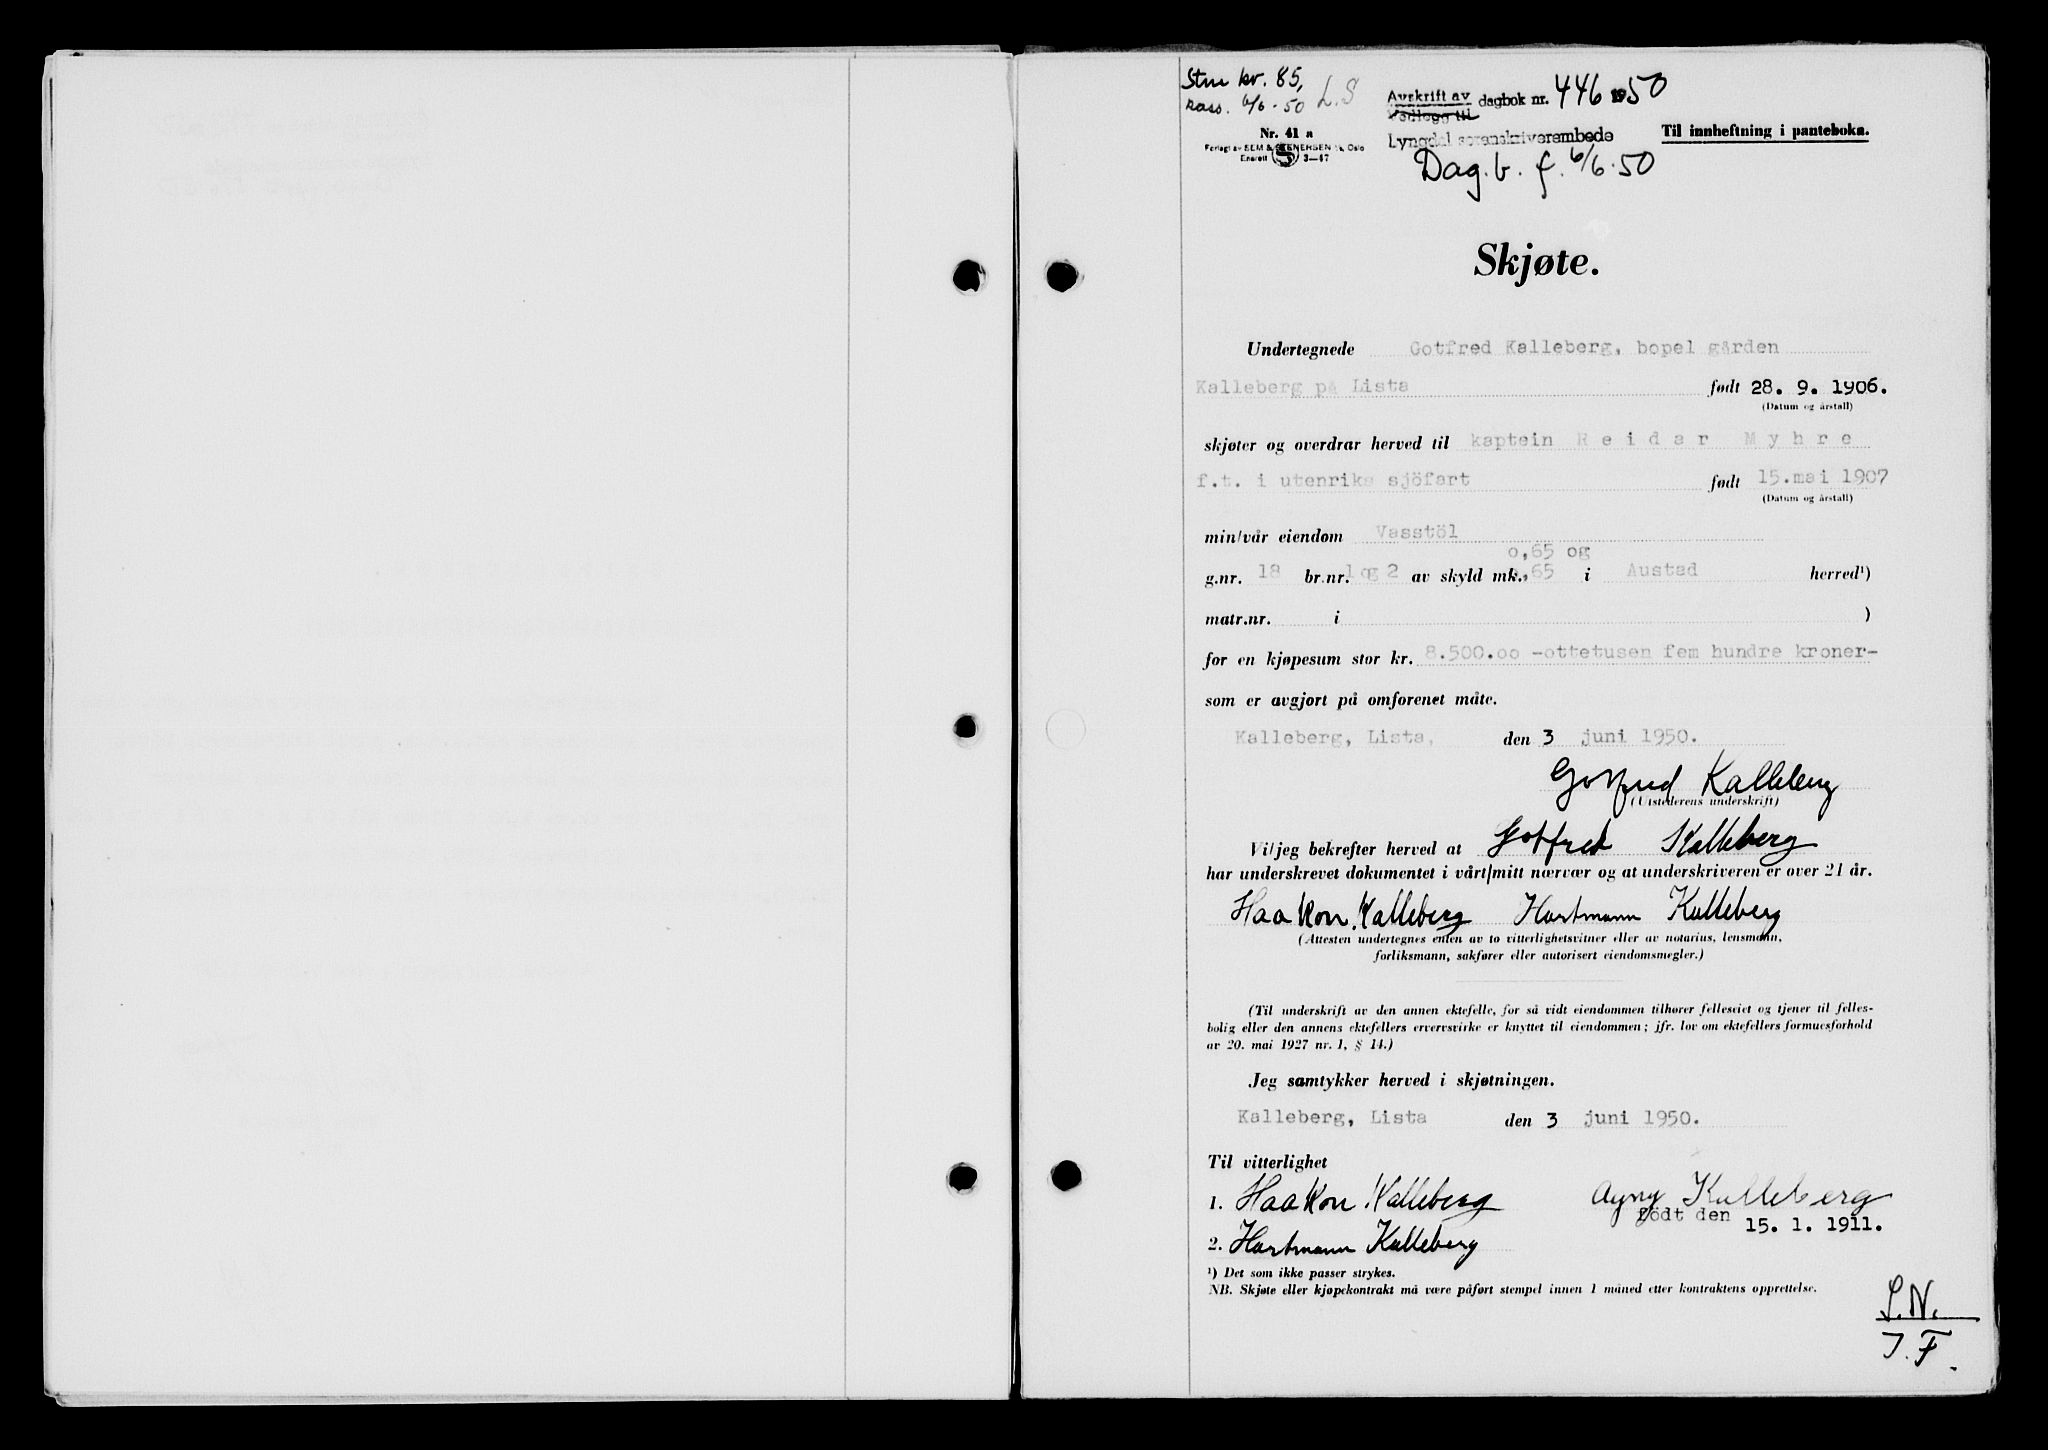 Stm kr. 85,
kass. 6/6-50 L.S
Avskrift av dagbok nr. 446 1950
Vedlegg til
Nr. 41 a
Lyngdal sorenskriverembede
Til innheftning i panteboka.
Forlagt av SEM & STENERSEN A/S, Oslo
Enerett S 3—47
Dag.b. f. 6/6.50
Skjøte.
Undertegnede Gotfred Kalleberg, bopel gården
Kalleberg på Lista født 28. 9. 1906.
(Datum og årstall)
skjøter og overdrar herved til kaptein Reidar Myhre
f.t. i utenriks sjöfart født 15.mai 1907
(Datum og årstall)
min/vår eiendom Vasstöl
o,65 og
g.nr. 18 br.nr. 1 og 2 av skyld mk. o,65 i Austad herred¹)
matr.nr. i )
for en kjøpesum stor kr. 8.500.oo -ottetusen fem hundre kroner-
som er avgjort på omforenet måte.
Kalleberg, Lista, den 3 juni 1950.
Gotfred Kalleberg
(Utstederens underskrift)
Vi/jeg bekrefter herved at Gotfred Kalleberg
har underskrevet dokumentet i vårt/mitt nærvær og at underskriveren er over 21 år.
Haakon Kalleberg Hartmann Kalleberg
(Attesten undertegnes enten av to vitterlighetsvitner eller av notarius, lensmann,
forliksmann, sakfører eller autorisert eiendomsmegler.)
(Til underskrift av den annen ektefelle, for så vidt eiendommen tilhører felleseiet og tjener til felles-
bolig eller den annens ektefellers ervervsvirke er knyttet til eiendommen; jfr. lov om ektefellers formuesforhold
av 20. mai 1927 nr. 1, § 14.)
Jeg samtykker herved i skjøtningen.
Kalleberg, Lista den 3 juni 1950.
Til vitterlighet
1. Haakon Kalleberg Agny Kalleberg
födt den 15. 1. 1911.
2. Hartmann Kalleberg
¹) Det som ikke passer strykes.
NB. Skjøte eller kjøpekontrakt må være påført stempel innen 1 måned etter kontraktens opprettelse.
S.N.
J.F.